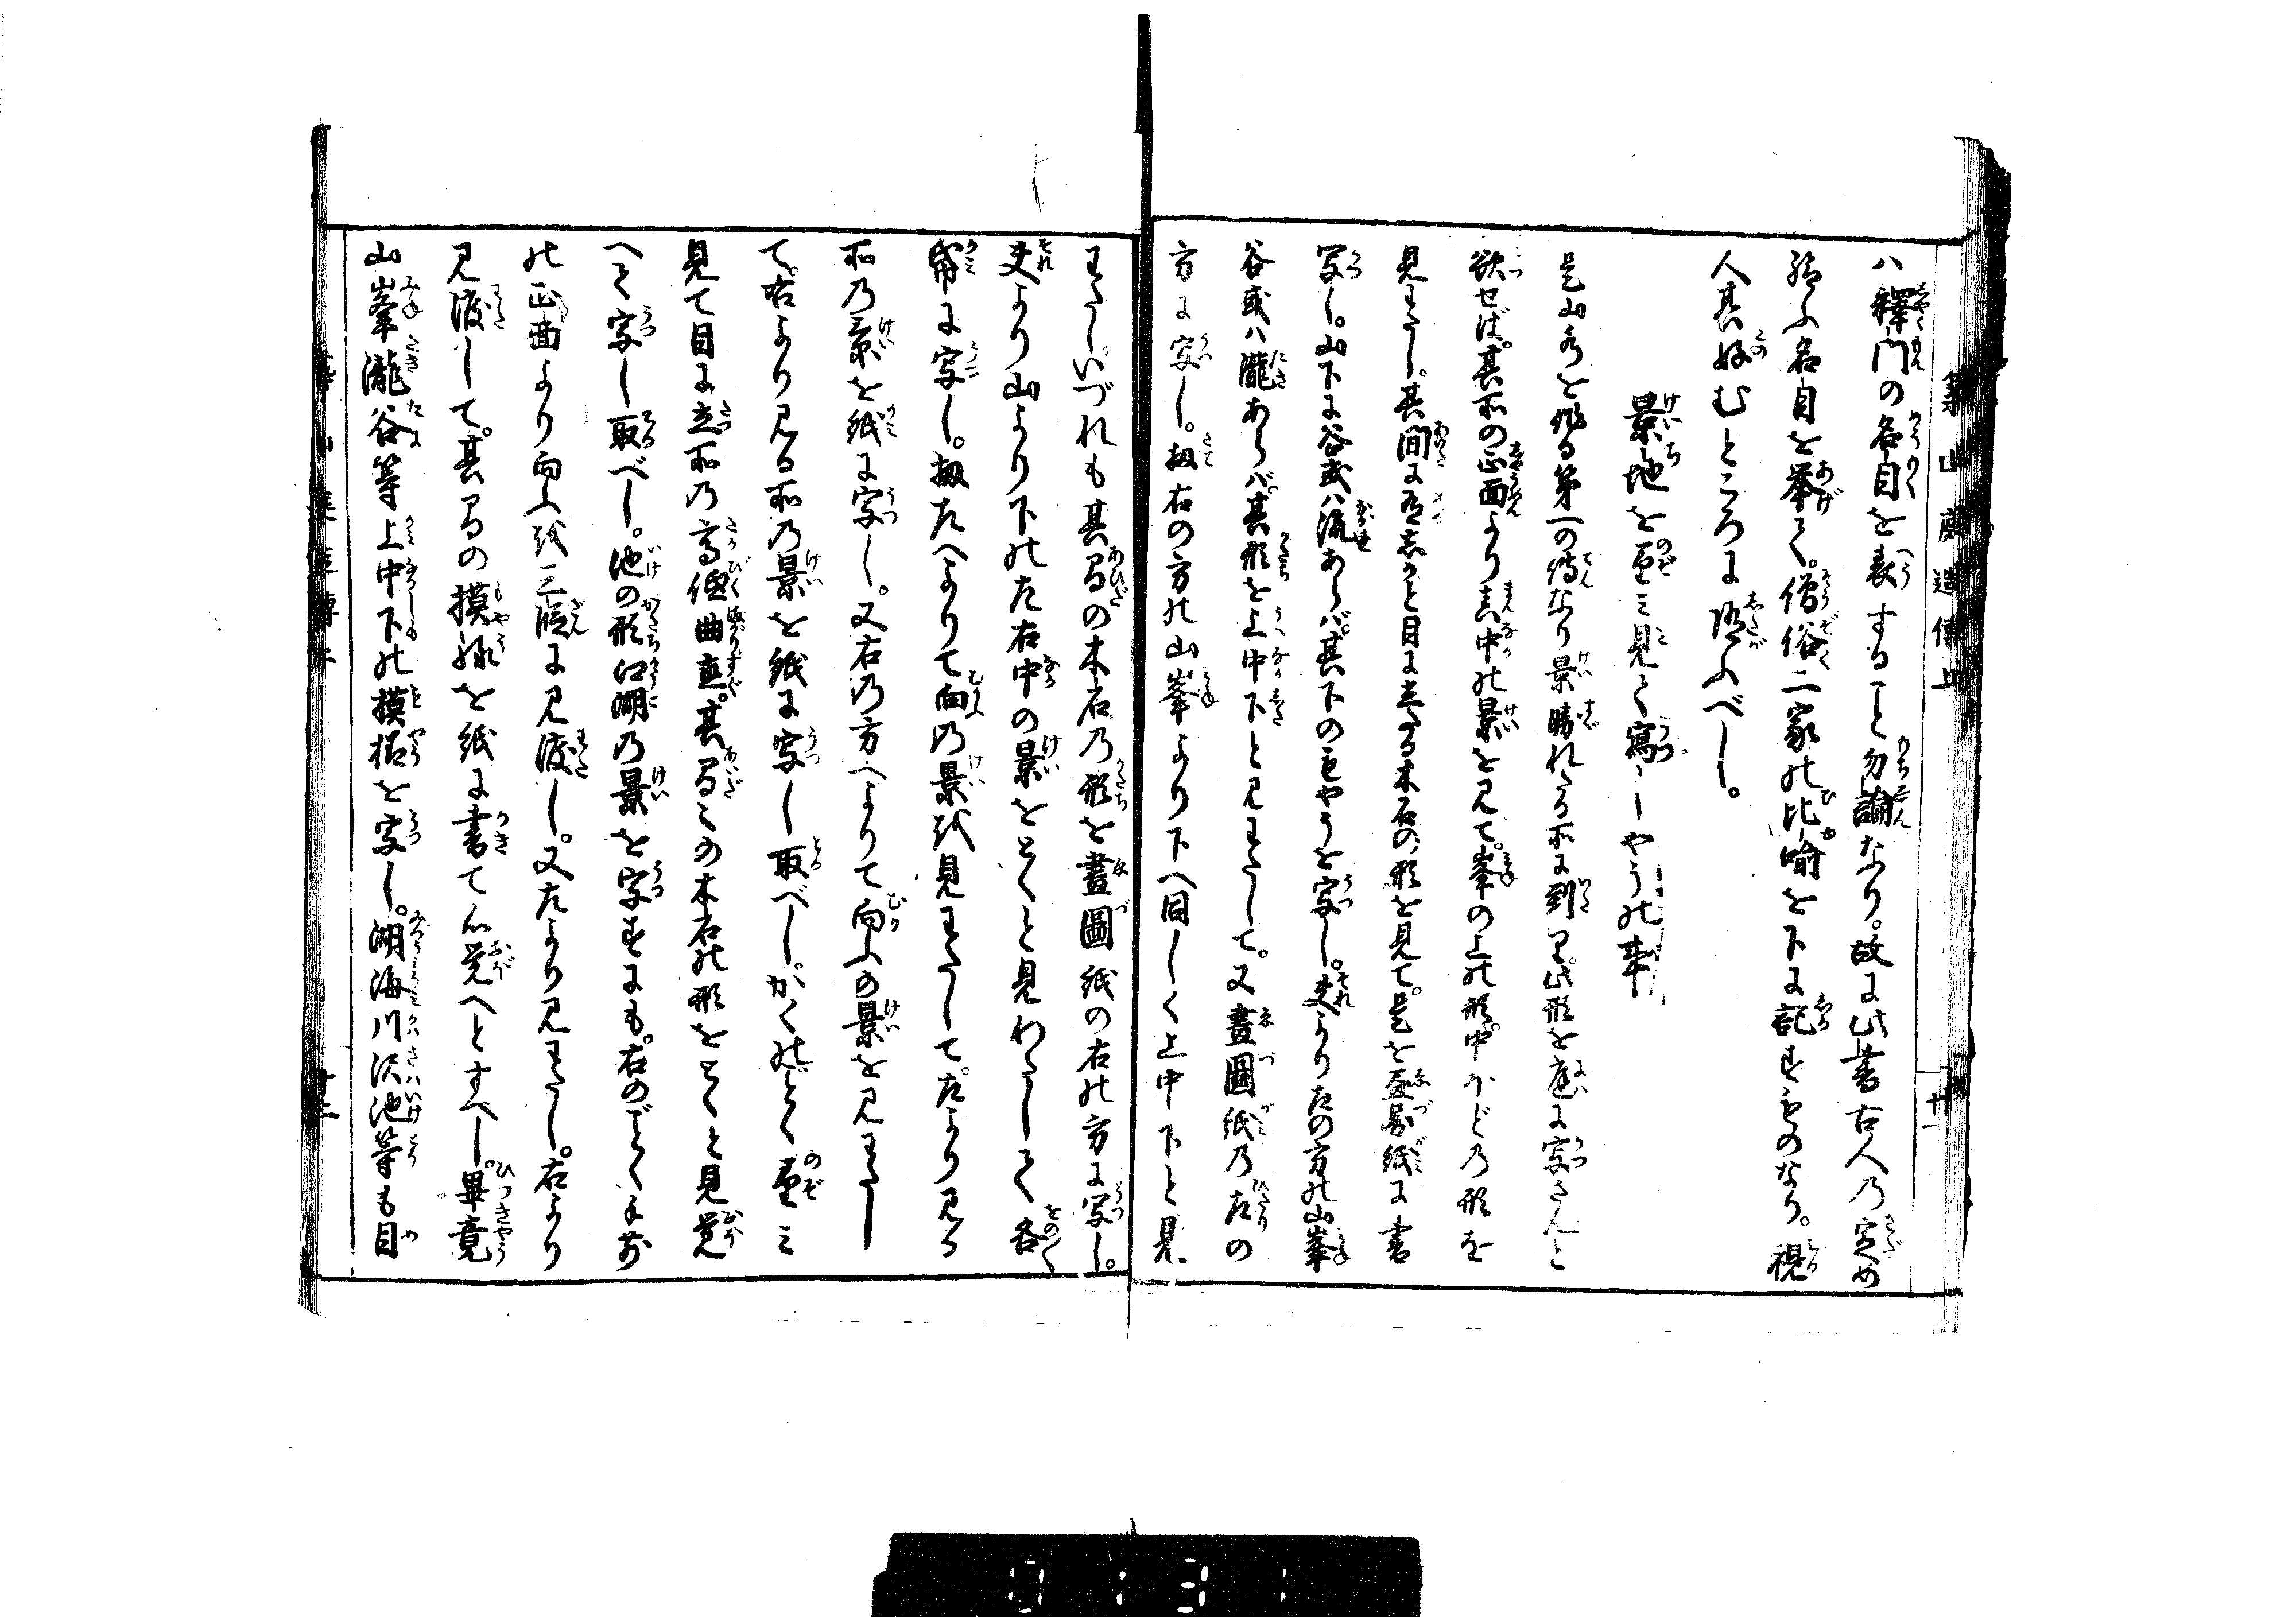 築山庭造傳上
十一
ハ釋門の名目を表すること勿論なり。故に此書古人乃定め
給ふ名目を挙て。僧俗二家の比喩を下に記すものなり。視
人其好むところに隨ふべし。
景地を臨ミ見て寫しやうの事
是山水を作る第一の傳なり景勝れたる所に到り此形を庭に写さんと
欲せば。其所の正面より真中の景を見て。峯の上の形。中ほどの形を
見わたし。其間に有あらと目に立たる木石の形を見て。是を画圖紙に書
写し。山下に谷或ハ流あらバ。其下のもやうを写し。夫より左の方の山峯
谷或ハ瀧あらバ其形を上中下と見わたして。又畫圖紙乃左の
方に写し。扨右の方の山峯より下へ同しく上中下と見
わたしいづれも其間の木石乃形を畫圖紙の右の方に写し。
夫より山より下の左右中の景をとくと見わたして各
帋に写し。扨左へよりて向乃景を見わたして。左より見る
所乃景を紙に写し。又右乃方へよりて向ふの景を見わたし
て。右より見る所乃景を紙に写し取べし。かくのごとく臨ミ
見て目に立所乃高低曲直。其間〻の木石の形をとくと見覚
へて写し取べし。池の形江湖乃景を写すにも。右のごとく手前
の正面より向ふを一臨に見渡し。又左より見わたし。右より
見渡して。其間の摸様を紙に書て心覚へとすべし。畢竟
山峯瀧谷等上中下の摸様を写し。湖海川沢池等も目